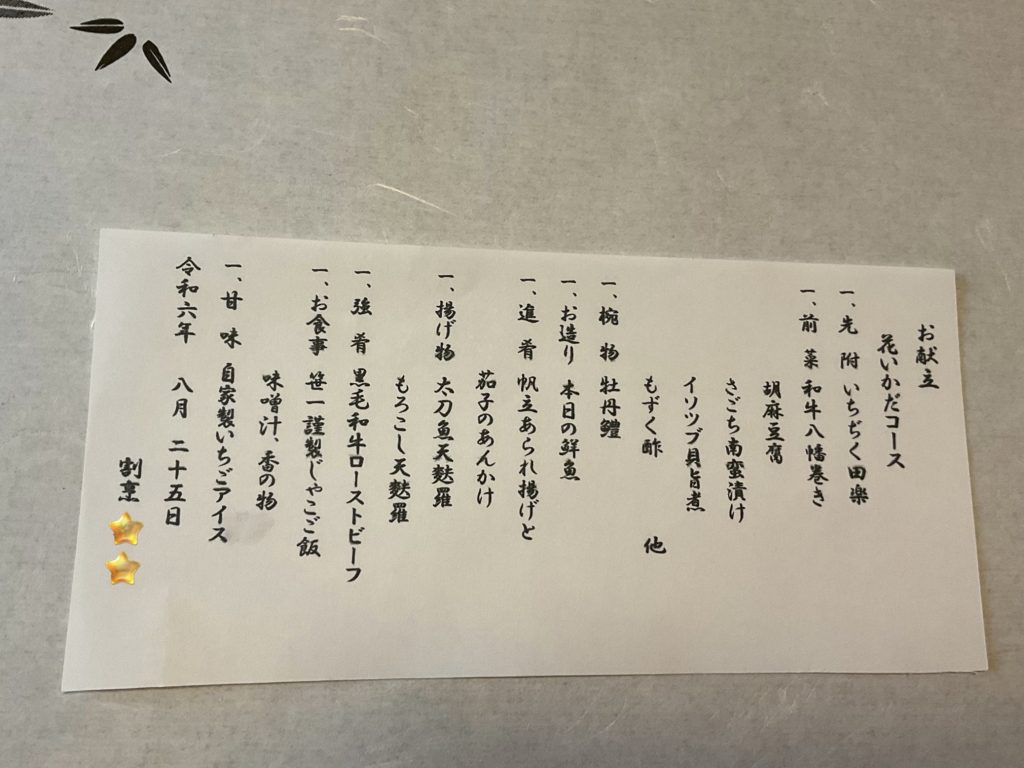 お献立
花いかだコース
一、先 附 いちぢく田楽
一、前 菜 和牛八幡巻き
胡麻豆腐
さごち南蜜漬け
イソツブ貝旨煮
もずく酢 他
一、椀 物 牡丹鱧
一、お造り 本日の鮮魚
一、進 肴 帆立あられ揚げと
茄子のあんかけ
一、揚げ物 太刀魚天麩羅
もろこし天麩羅
一、強 肴 黒毛和牛ローストビーフ
一、お食事 笹一謹製じゃこご飯
味噌汁、香の物
一、甘 味 自家製いちごアイス
令和六年 八月 二十五日
割烹